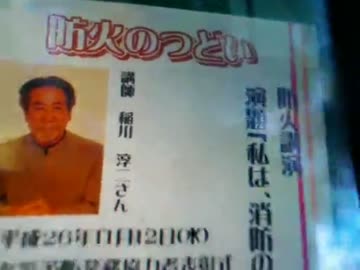 防火のつどい
防火講演
演題『私は、消防の
講師 稲川 淳二さん
平成26年11月12日(水)